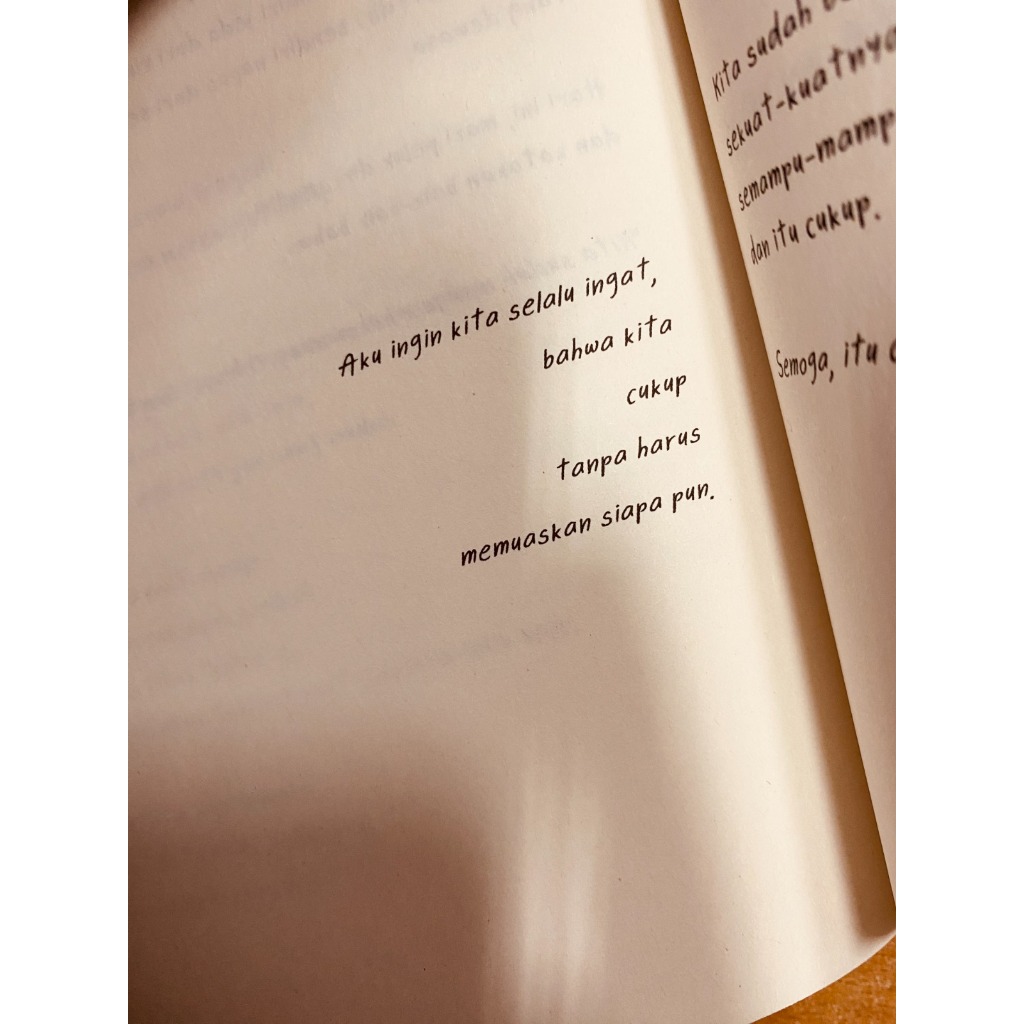 Aku ingin kita selalu ingat,
bahwa kita
cukup
tanpa harus
memuaskan siapa pun.
Kita sudah
sekuat-kuatnya
semampu-mamp
dan itu cukup.
Semoga, itu